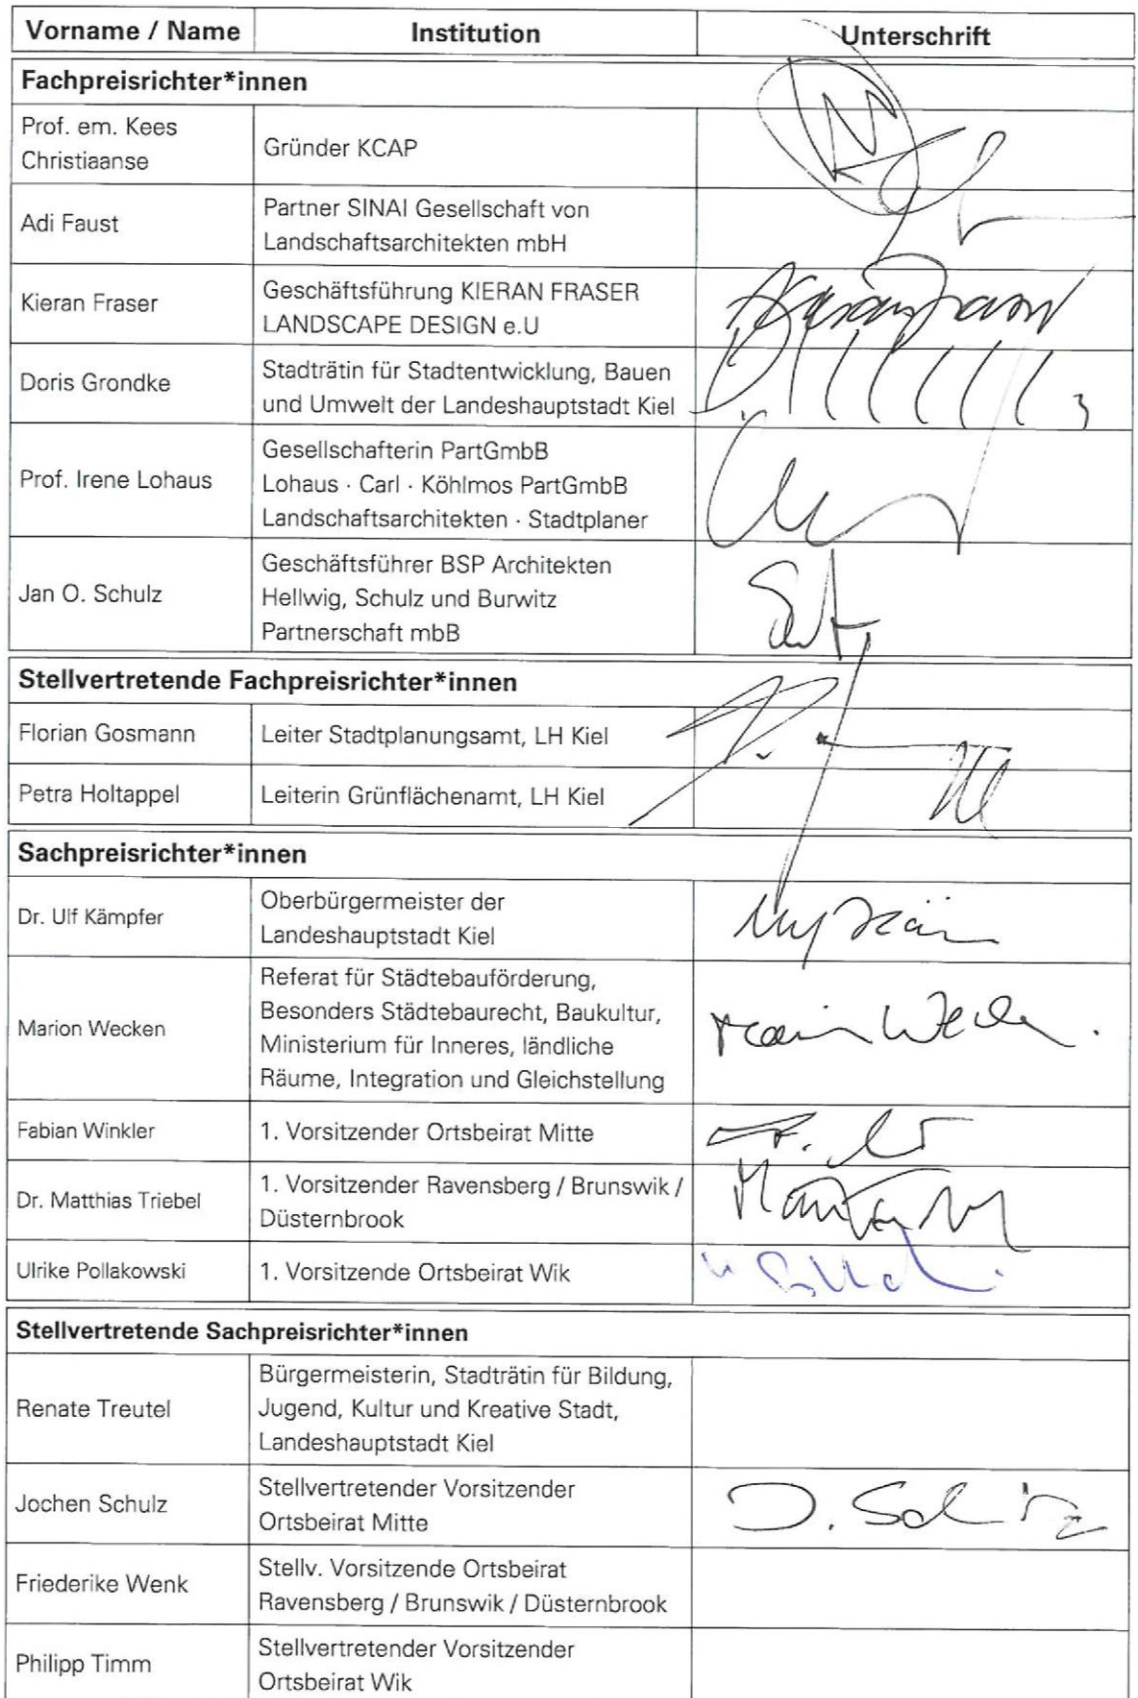 Vorname / Name Institution Unterschrift
Fachpreisrichter*innen
Prof. em. Kees
Christiaanse
Gründer KCAP
Adi Faust
Partner SINAI Gesellschaft von
Landschaftsarchitekten mbH
Kieran Fraser
Geschäftsführung KIERAN FRASER
LANDSCAPE DESIGN e.U
Doris Grondke
Stadträtin für Stadtentwicklung, Bauen
und Umwelt der Landeshauptstadt Kiel
Prof. Irene Lohaus
Gesellschafterin PartGmbB
Lohaus · Carl · Köhlmos PartGmbB
Landschaftsarchitekten · Stadtplaner
Jan O. Schulz
Geschäftsführer BSP Architekten
Hellwig, Schulz und Burwitz
Partnerschaft mbB
Stellvertretende Fachpreisrichter*innen
Florian Gosmann
Leiter Stadtplanungsamt, LH Kiel
Petra Holtappel
Leiterin Grünflächenamt, LH Kiel
Sachpreisrichter*innen
Dr. Ulf Kämpfer
Oberbürgermeister der
Landeshauptstadt Kiel
Marion Wecken
Referat für Städtebauförderung,
Besonders Städtebaurecht, Baukultur,
Ministerium für Inneres, ländliche
Räume, Integration und Gleichstellung
Fabian Winkler
1. Vorsitzender Ortsbeirat Mitte
Dr. Matthias Triebel
1. Vorsitzender Ravensberg / Brunswik /
Düsternbrook
Ulrike Pollakowski
1. Vorsitzende Ortsbeirat Wik
Stellvertretende Sachpreisrichter*innen
Renate Treutel
Bürgermeisterin, Stadträtin für Bildung,
Jugend, Kultur und Kreative Stadt,
Landeshauptstadt Kiel
Jochen Schulz
Stellvertretender Vorsitzender
Ortsbeirat Mitte
J. Schulz
Friederike Wenk
Stellv. Vorsitzende Ortsbeirat
Ravensberg / Brunswik / Düsternbrook
Philipp Timm
Stellvertretender Vorsitzender
Ortsbeirat Wik